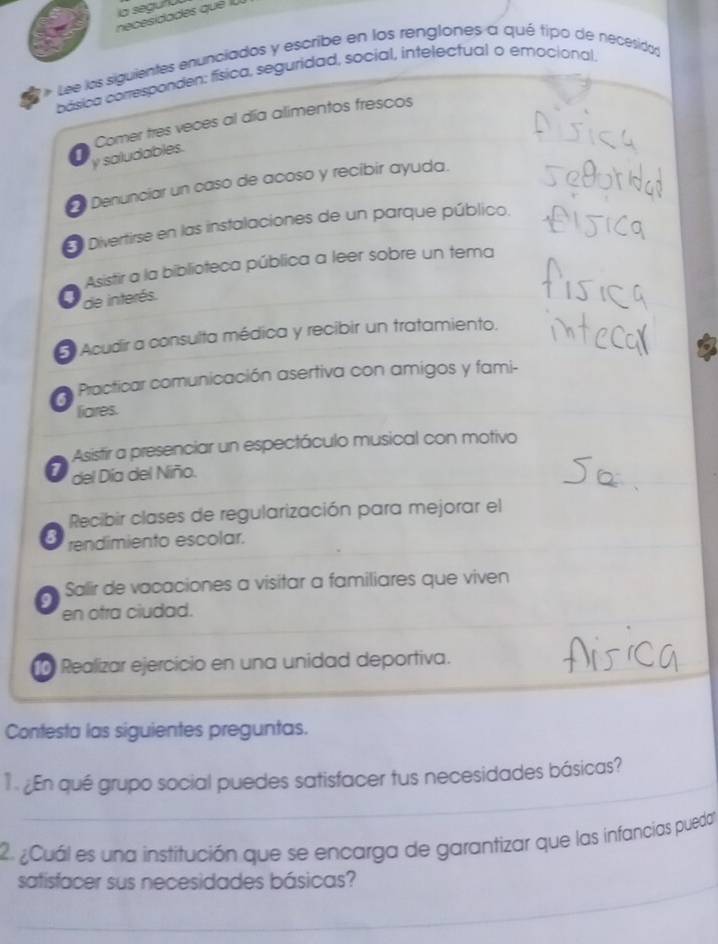 la segun
necesidades que
Lee los siguientes enunciados y escribe en los renglones a qué tipo de necesidad
básica corresponden: física, seguridad, social, intelectual o emocional.
1 Comer tres veces al día alimentos frescos
y saludables.
física
2 Denunciar un caso de acoso y recibir ayuda.
seguridad
3 Divertirse en las instalaciones de un parque público.
fisica
4 Asistir a la biblioteca pública a leer sobre un tema
de interés.
fisica
5 Acudir a consulta médica y recibir un tratamiento.
intecar
6 Practicar comunicación asertiva con amigos y fami-
liares.
7 Asistir a presenciar un espectáculo musical con motivo
del Día del Niño.
So
8 Recibir clases de regularización para mejorar el
rendimiento escolar.
9 Salir de vacaciones a visitar a familiares que viven
en otra ciudad.
10 Realizar ejercicio en una unidad deportiva.
fisica
Contesta las siguientes preguntas.
1. ¿En qué grupo social puedes satisfacer tus necesidades básicas?
2. ¿Cuál es una institución que se encarga de garantizar que las infancias pueda
satisfacer sus necesidades básicas?